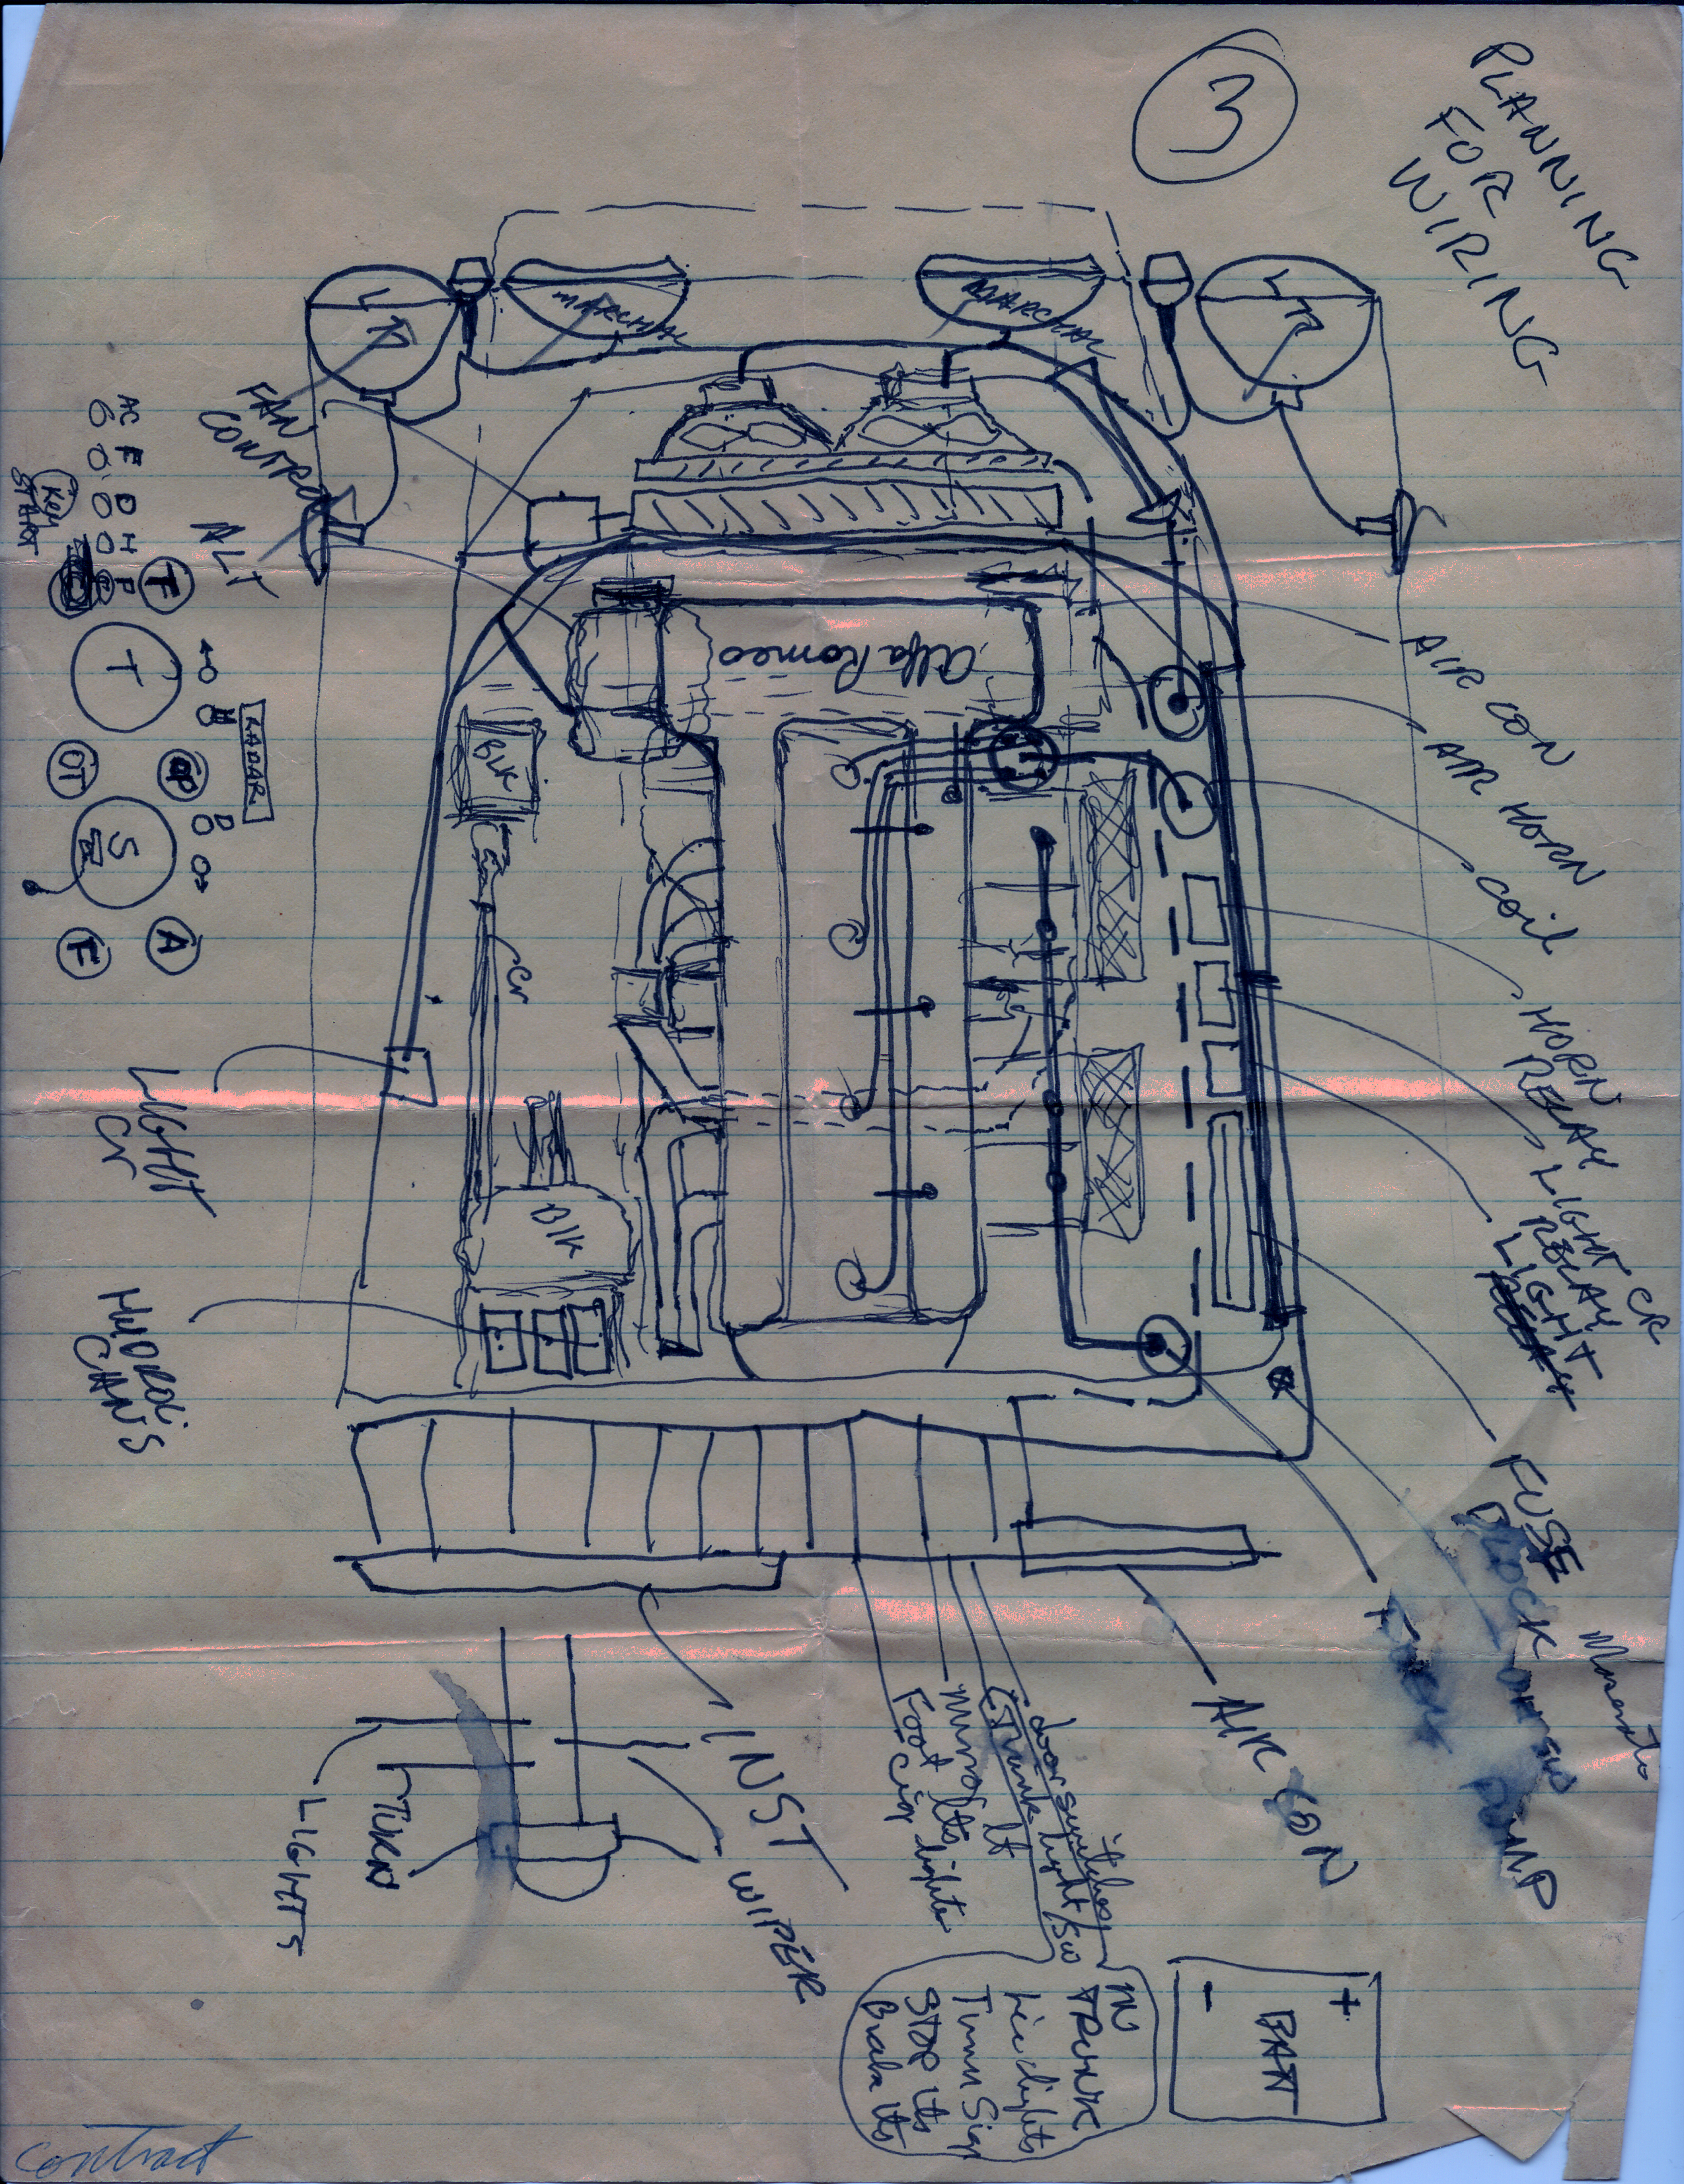 PLANNING
FOR
WIRING
3
MARCHAL
MARCHAL
FAN
CONTROL
ALT
AC F D H F
Key
START
T
T
H
RADAR
OT
OP
D
S
A
F
Alfa Romeo
Blk
Cr
Blk
LIGHT
Cr
HYDROLIS
CANS
AIR CON
AIR HORN
COIL
HORN
RELAY
LIGHT CR
RELAY
LIGHT
RELAY
FUSE
BLOCK
PUMP
AIR CON
INST
WIPER
TURN
LIGHTS
door switches
(Trunk light/sw
Mirror lt
Foot lts
Cig lighter
IN
TRUNK
Lic lights
Turn Sign
STOP lts
Brake lts
+
BAT
-
Contract